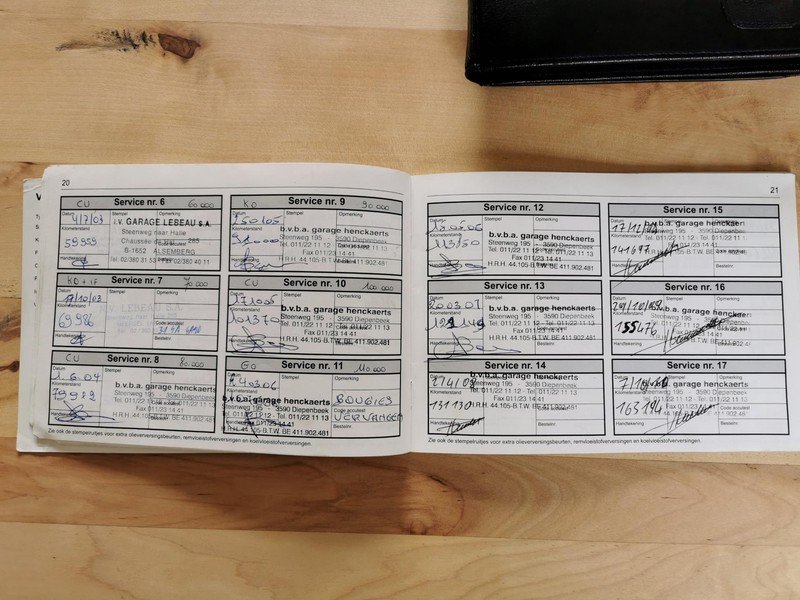 20
CU Service nr. 6 60 000
Datum Stempel Opmerking
4/7/03 I.V. GARAGE LEBEAU S.A.
Kilometerstand Steenweg naar Halle
59959 Chaussée 285
Handtekening B-1652 ALSEMBERG
Tel. 02/380 31 53 Fax 02/380 40 11
KD + IF Service nr. 7 70 000
Datum Stempel Opmerking
17/10/03
Kilometerstand
69986
Handtekening
CU Service nr. 8 80 000
Datum Stempel Opmerking
1.6.04 b.v.b.a. garage henckaerts
Kilometerstand Steenweg 195 - 3590 Diepenbeek
79912 Tel. 011/22 11 12 - Tel. 011/22 11 13
Handtekening Fax 011/23 14 41
H.R.H. 44.105-B.T.W. BE 411.902.481
KD Service nr. 9 90 000
Datum Stempel Opmerking
b.v.b.a. garage henckaerts
Kilometerstand Steenweg 195 3590 Diepenbeek
91000 Tel. 011/22 11 12 - Tel. 011/22 11 13
Handtekening Fax 011/23 14 41
H.R.H. 44.105-B.T.W. BE 411.902.481
Service nr. 10 100 000
Datum Stempel Opmerking
b.v.b.a. garage henckaerts
Kilometerstand Steenweg 195 - 3590 Diepenbeek
101370 Tel. 011/22 11 12 - Tel. 011/22 11 13
Handtekening Fax 011/23 14 41
H.R.H. 44.105-B.T.W. BE 411.902.481
Service nr. 11 110 000
Datum Stempel Opmerking
24.03.06 BOUGIES
b.v.b.a. garage henckaerts
Steenweg 195 - 3590 Diepenbeek Code accutest
Tel. 011/22 11 12 - Tel. 011/22 11 13 VERVANGEN
Handtekening Fax 011/23 14 41 Bestelnr.
H.R.H. 44.105-B.T.W. BE 411.902.481
Zie ook de stempelruitjes voor extra olieverversingsbeurten, remvloeistofverversingen en koelvloeistofverversingen.
21
Service nr. 12
Datum Stempel Opmerking
b.v.b.a. garage henckaerts
Kilometerstand Steenweg 195 - 3590 Diepenbeek
113150 Tel. 011/22 11 12 - Tel. 011/22 11 13
Handtekening Fax 011/23 14 41
H.R.H. 44.105-B.T.W. BE 411.902.481
Service nr. 13
Datum Stempel Opmerking
20.03.07 b.v.b.a. garage henckaerts
Kilometerstand Steenweg 195 - 3590 Diepenbeek
Tel. 011/22 11 12 - Tel. 011/22 11 13
Handtekening Fax 011/23 14 41
H.R.H. 44.105-B.T.W. BE 411.902.481
Service nr. 14
Datum Stempel Opmerking
b.v.b.a. garage henckaerts
Kilometerstand Steenweg 195 - 3590 Diepenbeek
131130 Tel. 011/22 11 12 - Tel. 011/22 11 13
Handtekening Fax 011/23 14 41 Bestelnr.
H.R.H. 44.105-B.T.W. BE 411.902.481
Service nr. 15
Datum Stempel Opmerking
b.v.b.a. garage henckaerts
Kilometerstand Steenweg 195 - 3590 Diepenbeek
141697 Tel. 011/22 11 12 - Tel. 011/22 11 13
Handtekening Fax 011/23 14 41 Bestelnr.
H.R.H. 44.105-B.T.W. BE 411.902.481
Service nr. 16
Datum Stempel Opmerking
b.v.b.a. garage henckaerts
Kilometerstand Steenweg 195 - 3590 Diepenbeek
155476 Tel. 011/22 11 12 - Tel. 011/22 11 13
Handtekening Fax 011/23 14 41 Bestelnr.
H.R.H. 44.105-B.T.W. BE 411.902.481
Service nr. 17
Datum Stempel Opmerking
b.v.b.a. garage henckaerts
Kilometerstand Steenweg 195 - 3590 Diepenbeek
163194 Tel. 011/22 11 12 - Tel. 011/22 11 13
Handtekening Fax 011/23 14 41 Bestelnr.
H.R.H. 44.105-B.T.W. BE 411.902.481
Zie ook de stempelruitjes voor extra olieverversingsbeurten, remvloeistofverversingen en koelvloeistofverversingen.